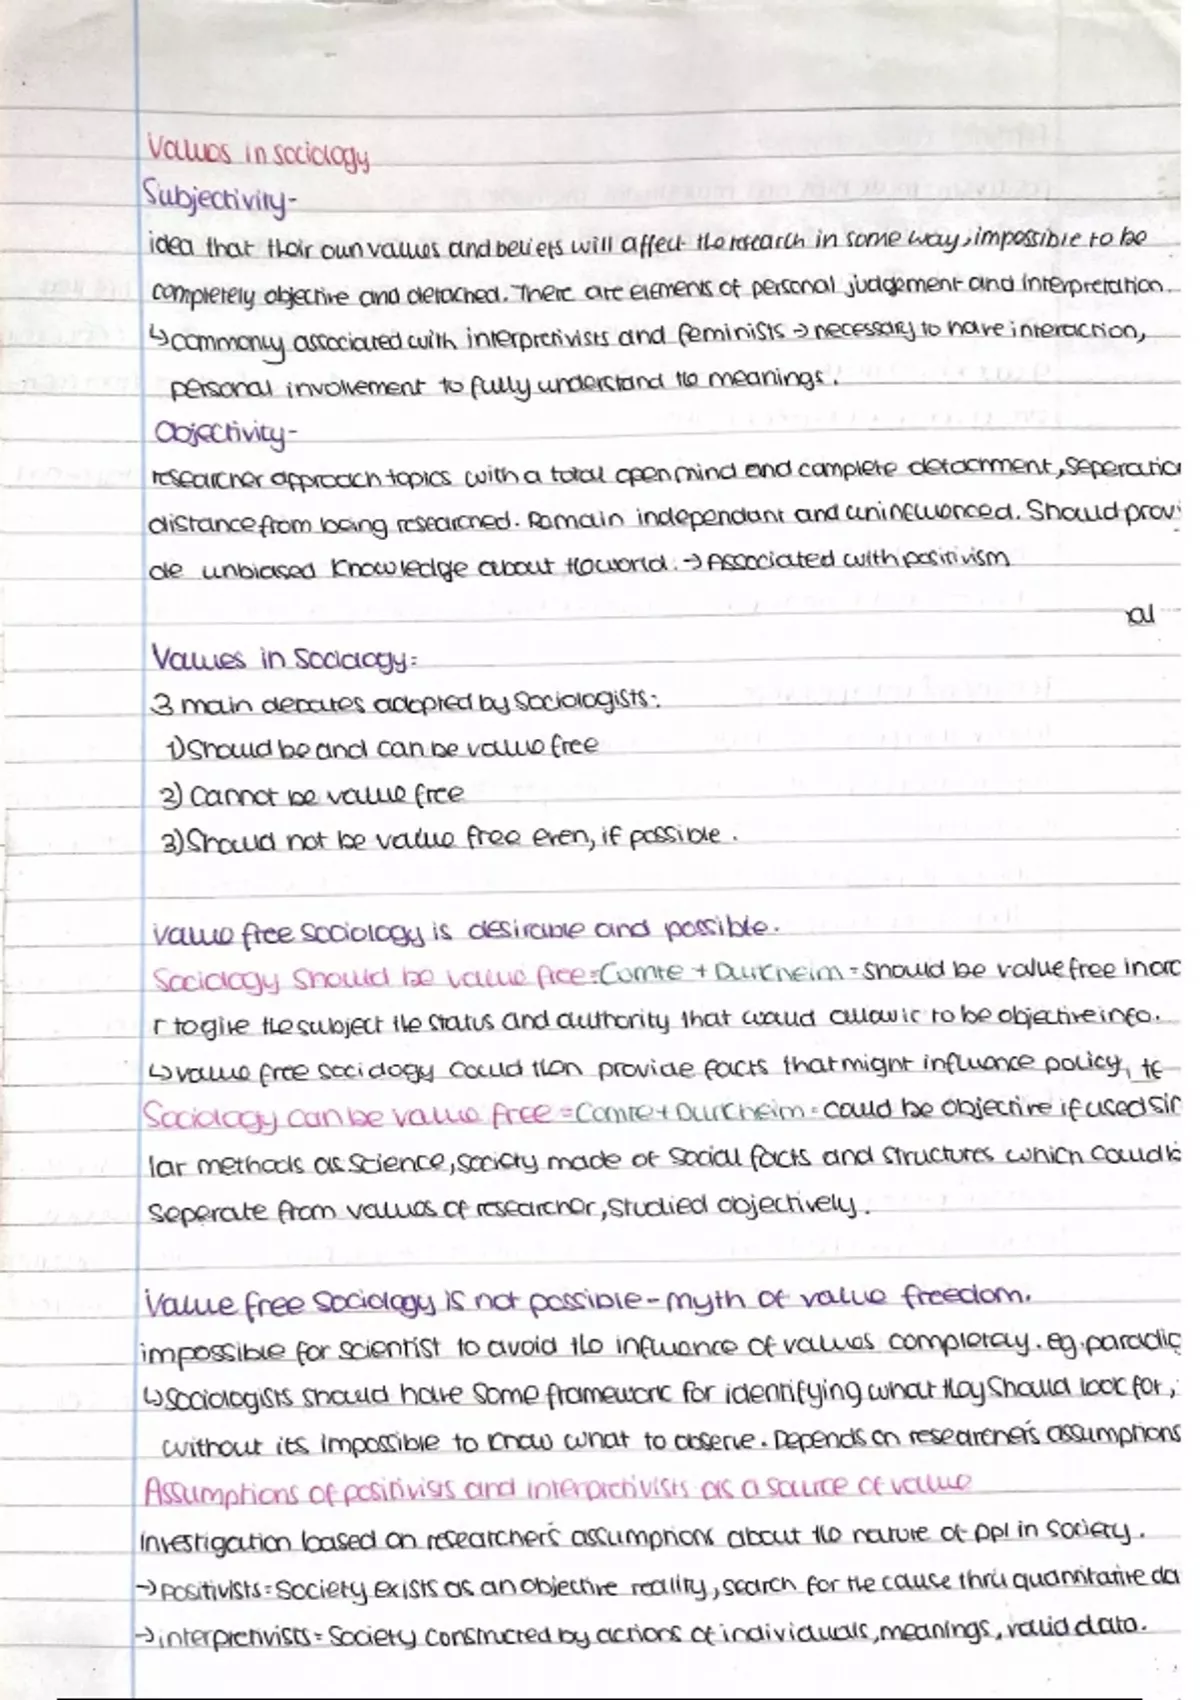 Values in sociology
Subjectivity-
idea that their own values and beliefs will affect the research in some way, impossible to be
completely objective and detached. There are elements of personal judgement and interpretation.
↳commonly associated with interpretivists and feminists → necessary to have interaction,
personal involvement to fully understand the meanings.
Objectivity-
researcher approach topics with a total open mind and complete detachment, Seperatio
distance from being researched. Remain independant and uninfluenced. Should prov
de unbiased knowledge about the world. → Associated with positivism
Values in Sociology:
3 main debates adopted by Sociologists:
1) Should be and can be value free
2) Cannot be value free
3) Should not be value free even, if possible.
Value free sociology is desirable and possible.
Sociology should be value free = Comte + Durkheim = should be value free in ord
r to give the subject the status and authority that would allow it to be objective info.
↳value free sociology could then provide facts that might influence policy,
Sociology can be value free = Comte + Durkheim = could be objective if used sim
lar methods as science, society made of social facts and structures which could b
seperate from values of researcher, studied objectively.
Value free sociology is not possible - myth of value freedom.
impossible for scientist to avoid the influence of values completely. eg. paradig
↳sociologists should have some framework for identifying what they should look for,
without its impossible to know what to observe. Depends on researcher's assumptions
Assumptions of positivists and interpretivists as a source of value
Investigation based on researcher's assumptions about the nature of ppl in society.
→ positivists = Society exists as an objective reality, search for the cause thru quantitative da
→ interpretivists = Society constructed by actions of individuals, meanings, valid data.